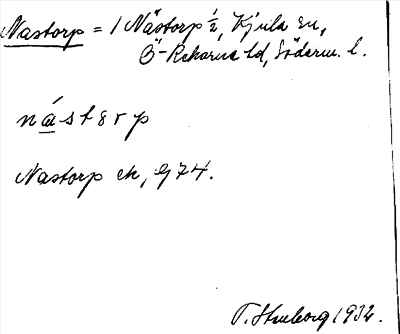 Nastorp = 1 Nästorp 1/2, Kjula sn,
Ö-Rekarne hd, Söderm. l.
nástɵrp
Nastorp ek, g74.
T. Stenborg 1932.